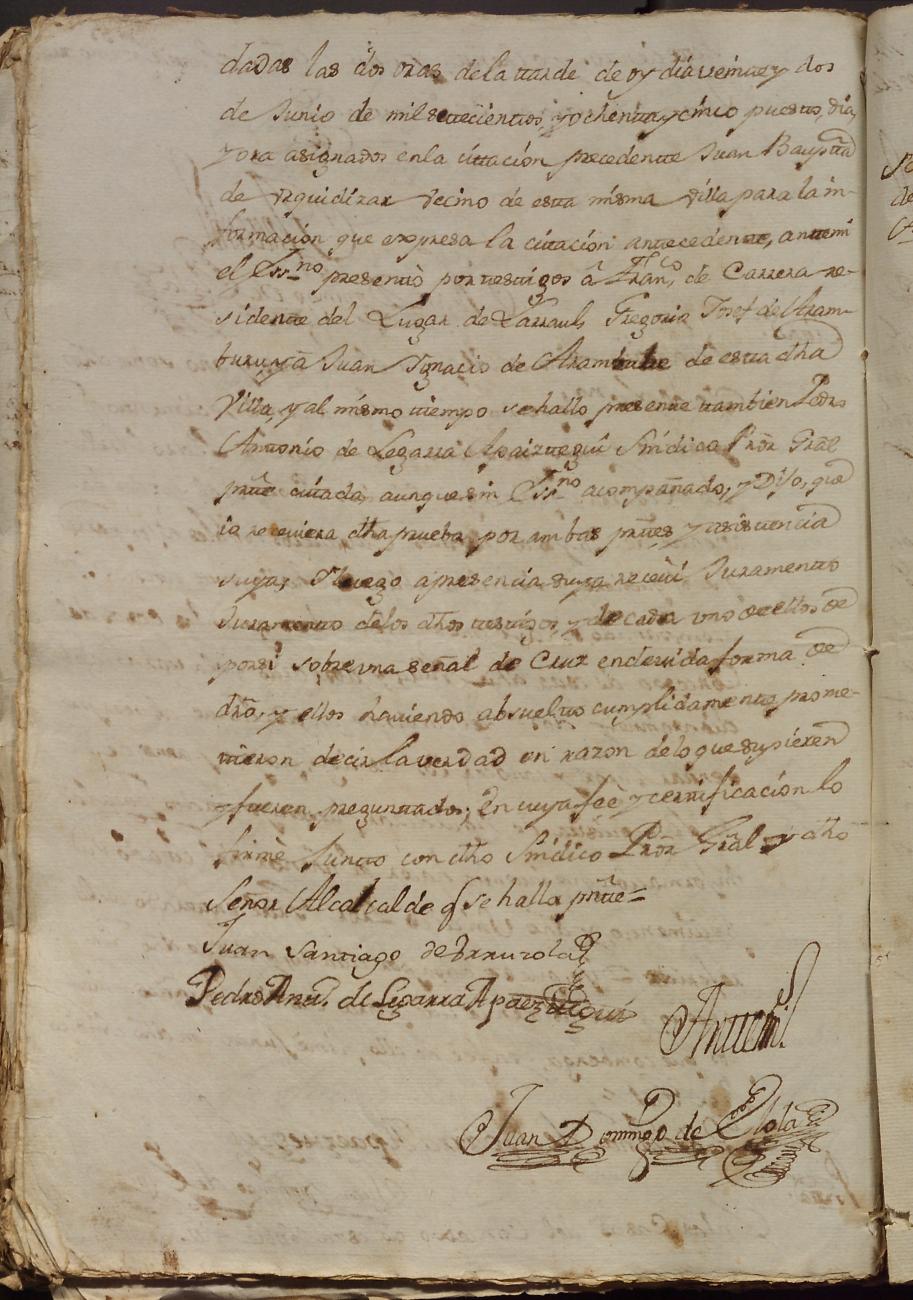 dadas las dos oras de la tarde de oy dia veinte y dos
de Junio de mil setecientos, y ochenta y cinco puesto, dia,
y ora asignados en la cittación precedente Juan Bauptta
de Vrquidizar vecino de esta misma Villa para la in-
formación que expresa la citación antecedente, antemi
el Essno presentò por testigos â Franco de Carrera re-
sidente del Lugar de Larraul, Gregorio Josef de Aram-
buru, y â Juan Ygnacio de de esta dha
Villa, y al mismo tiempo se hallo presente tambien Pedro
Antonio de Legarra Apaiztegui Sindico Pror Gral
prte citada, aunque sin Essno acompañado, y Dijo, que
la receviera dha prueba por ambas prtes, y asistencia
suya, Y luego a presencia suya receui Juramento
Juramento de los dhos testigos, y de cada uno de ellos de
por si sobre una señal de Cruz en devida forma de
dro, y ellos haviendo absuelto cumplidamente prome-
tieron decir la verdad en razon de lo que supieren
y fueren preguntados; En cuya feè y certificación lo
firmè junto con dho Sindico Pror Gral y dho
Señor Alcalcalde q se halla prnte=
Juan Santiago de
Pedro Antt. de Legarra Apaeztegui
Antemi
Juan Domingo de Elola